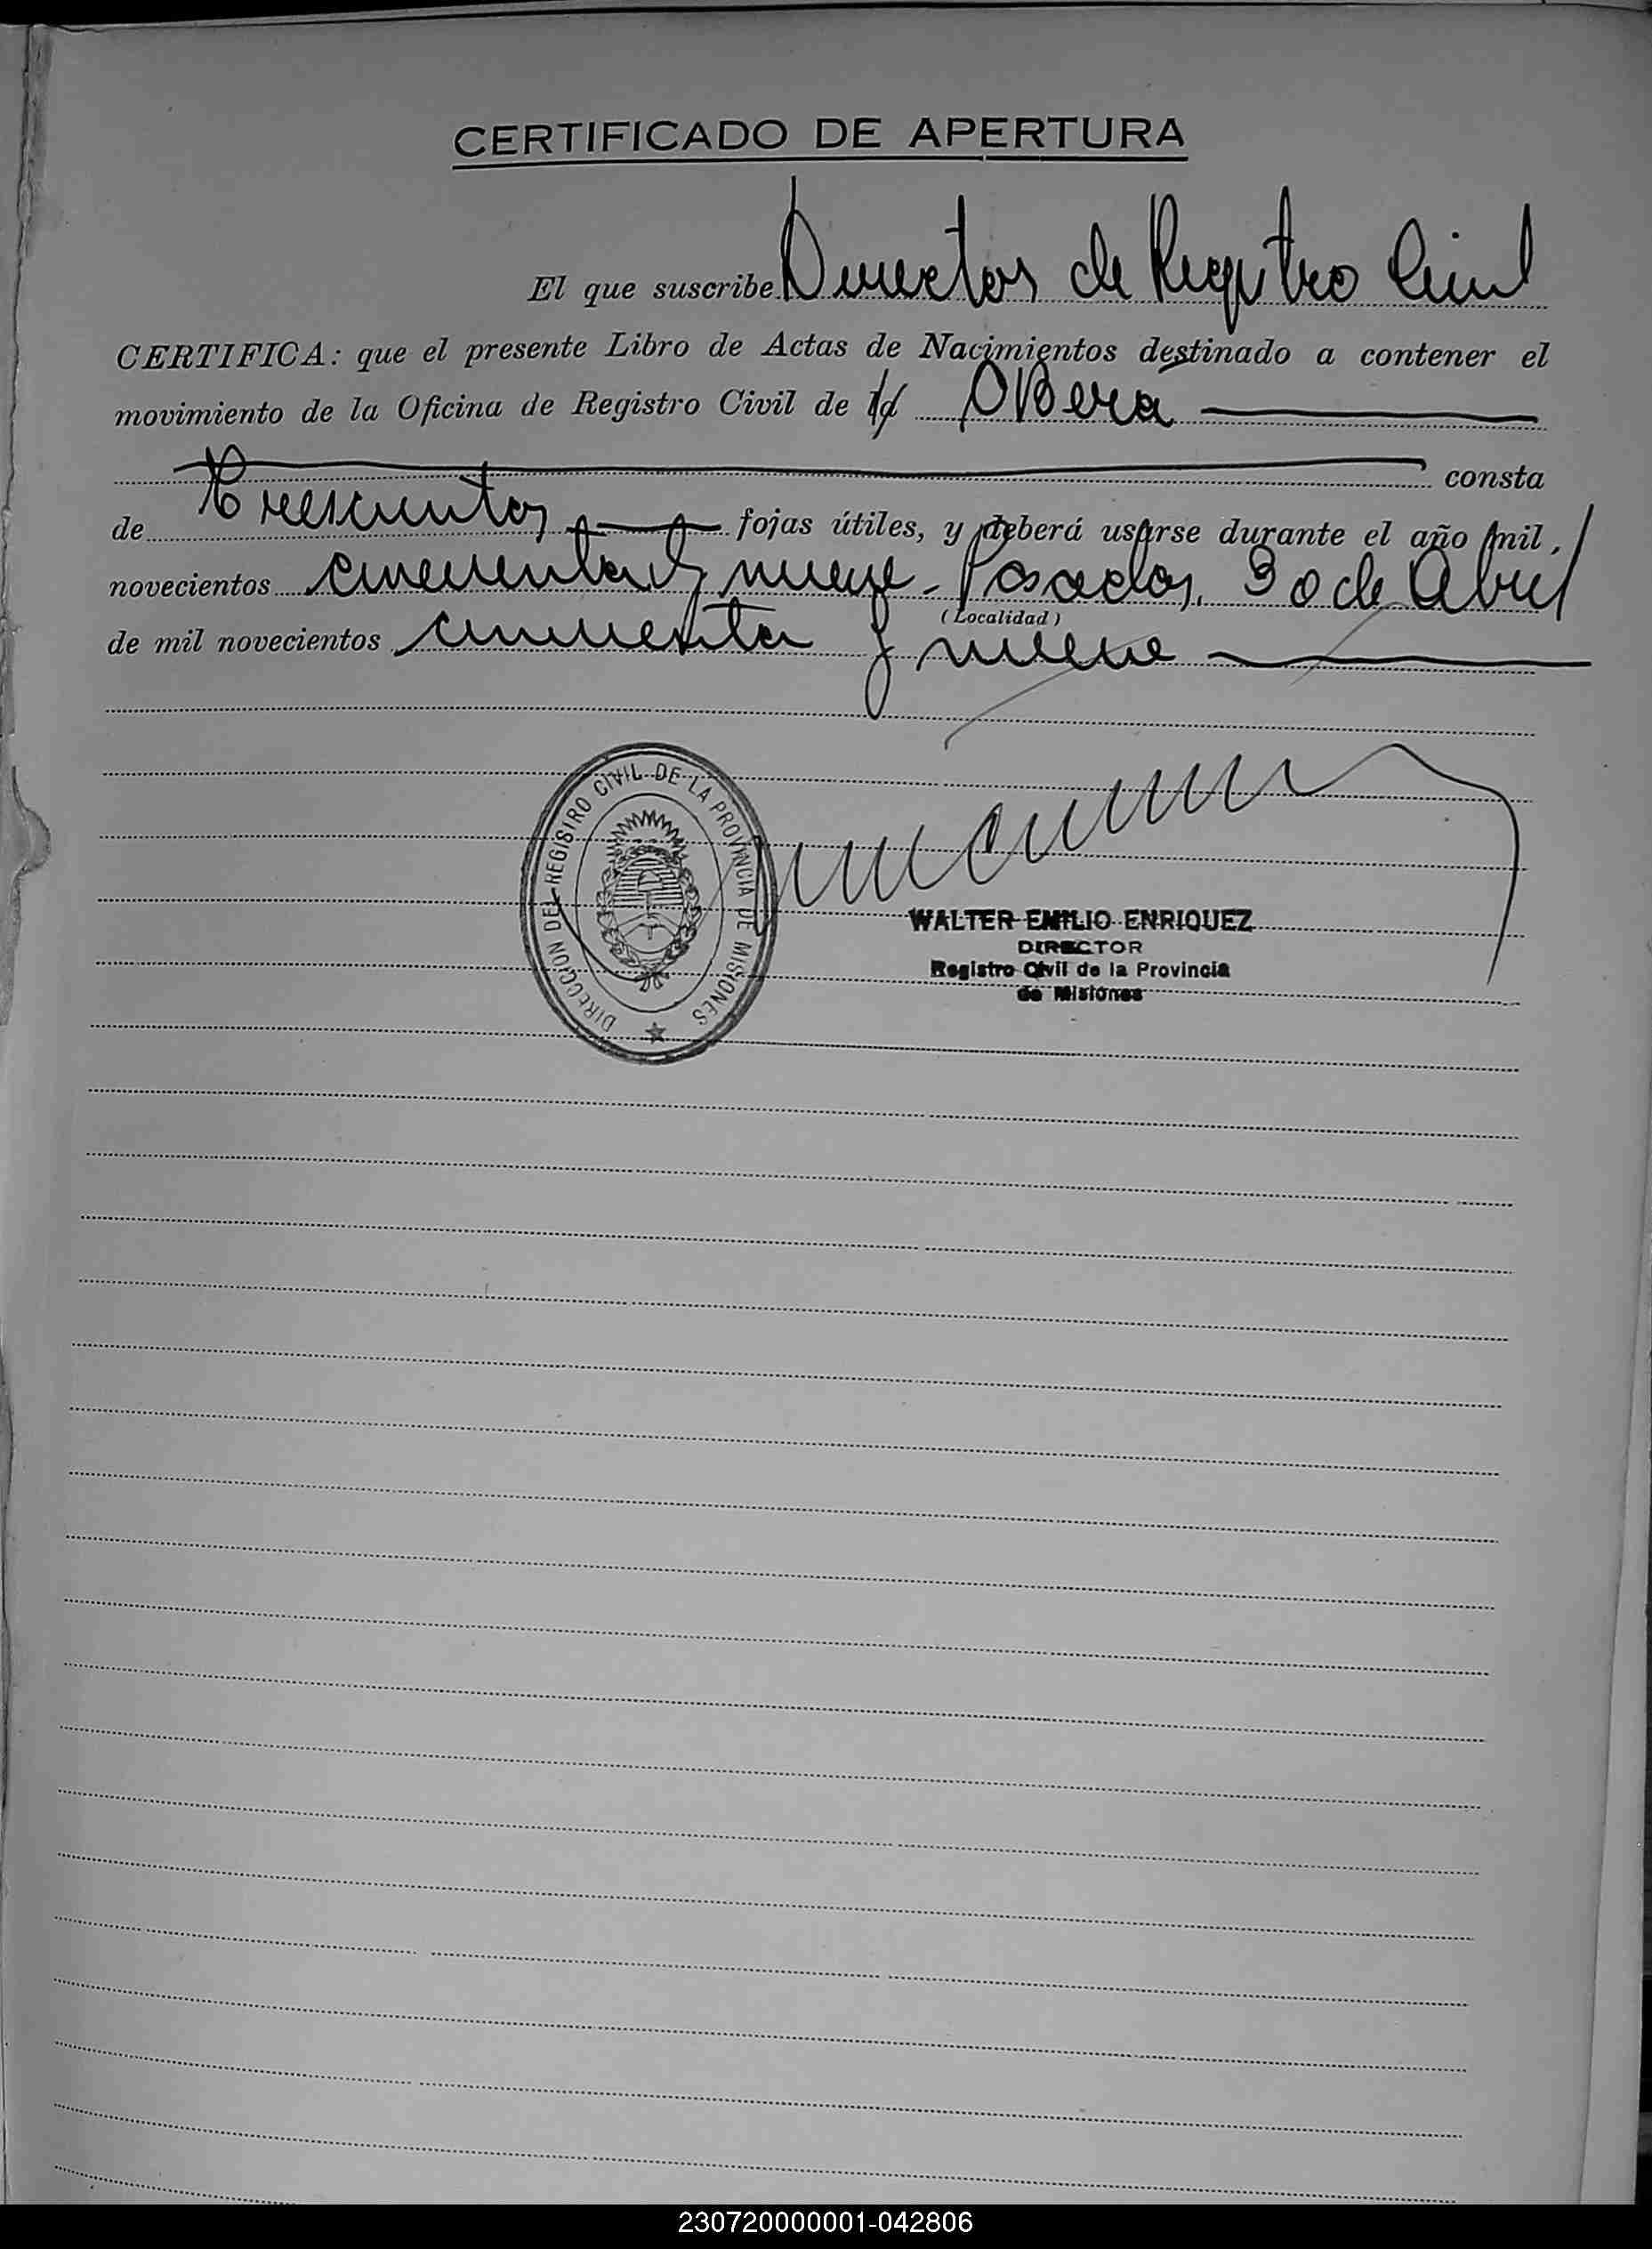 CERTIFICADO DE APERTURA
El que suscribe Director de Registro Civil
CERTIFICA: que el presente Libro de Actas de Nacimientos destinado a contener el
movimiento de la Oficina de Registro Civil de Obera
consta
de Trescientos fojas útiles, y deberá usarse durante el año mil
novecientos cincuenta y nueve - Posadas, 30 de Abril
(Localidad)
de mil novecientos cincuenta y nueve
DIRECCION DEL REGISTRO CIVIL DE LA PROVINCIA DE MISIONES
WALTER EMILIO ENRIQUEZ
DIRECTOR
Registro Civil de la Provincia
de Misiones
230720000001-042806